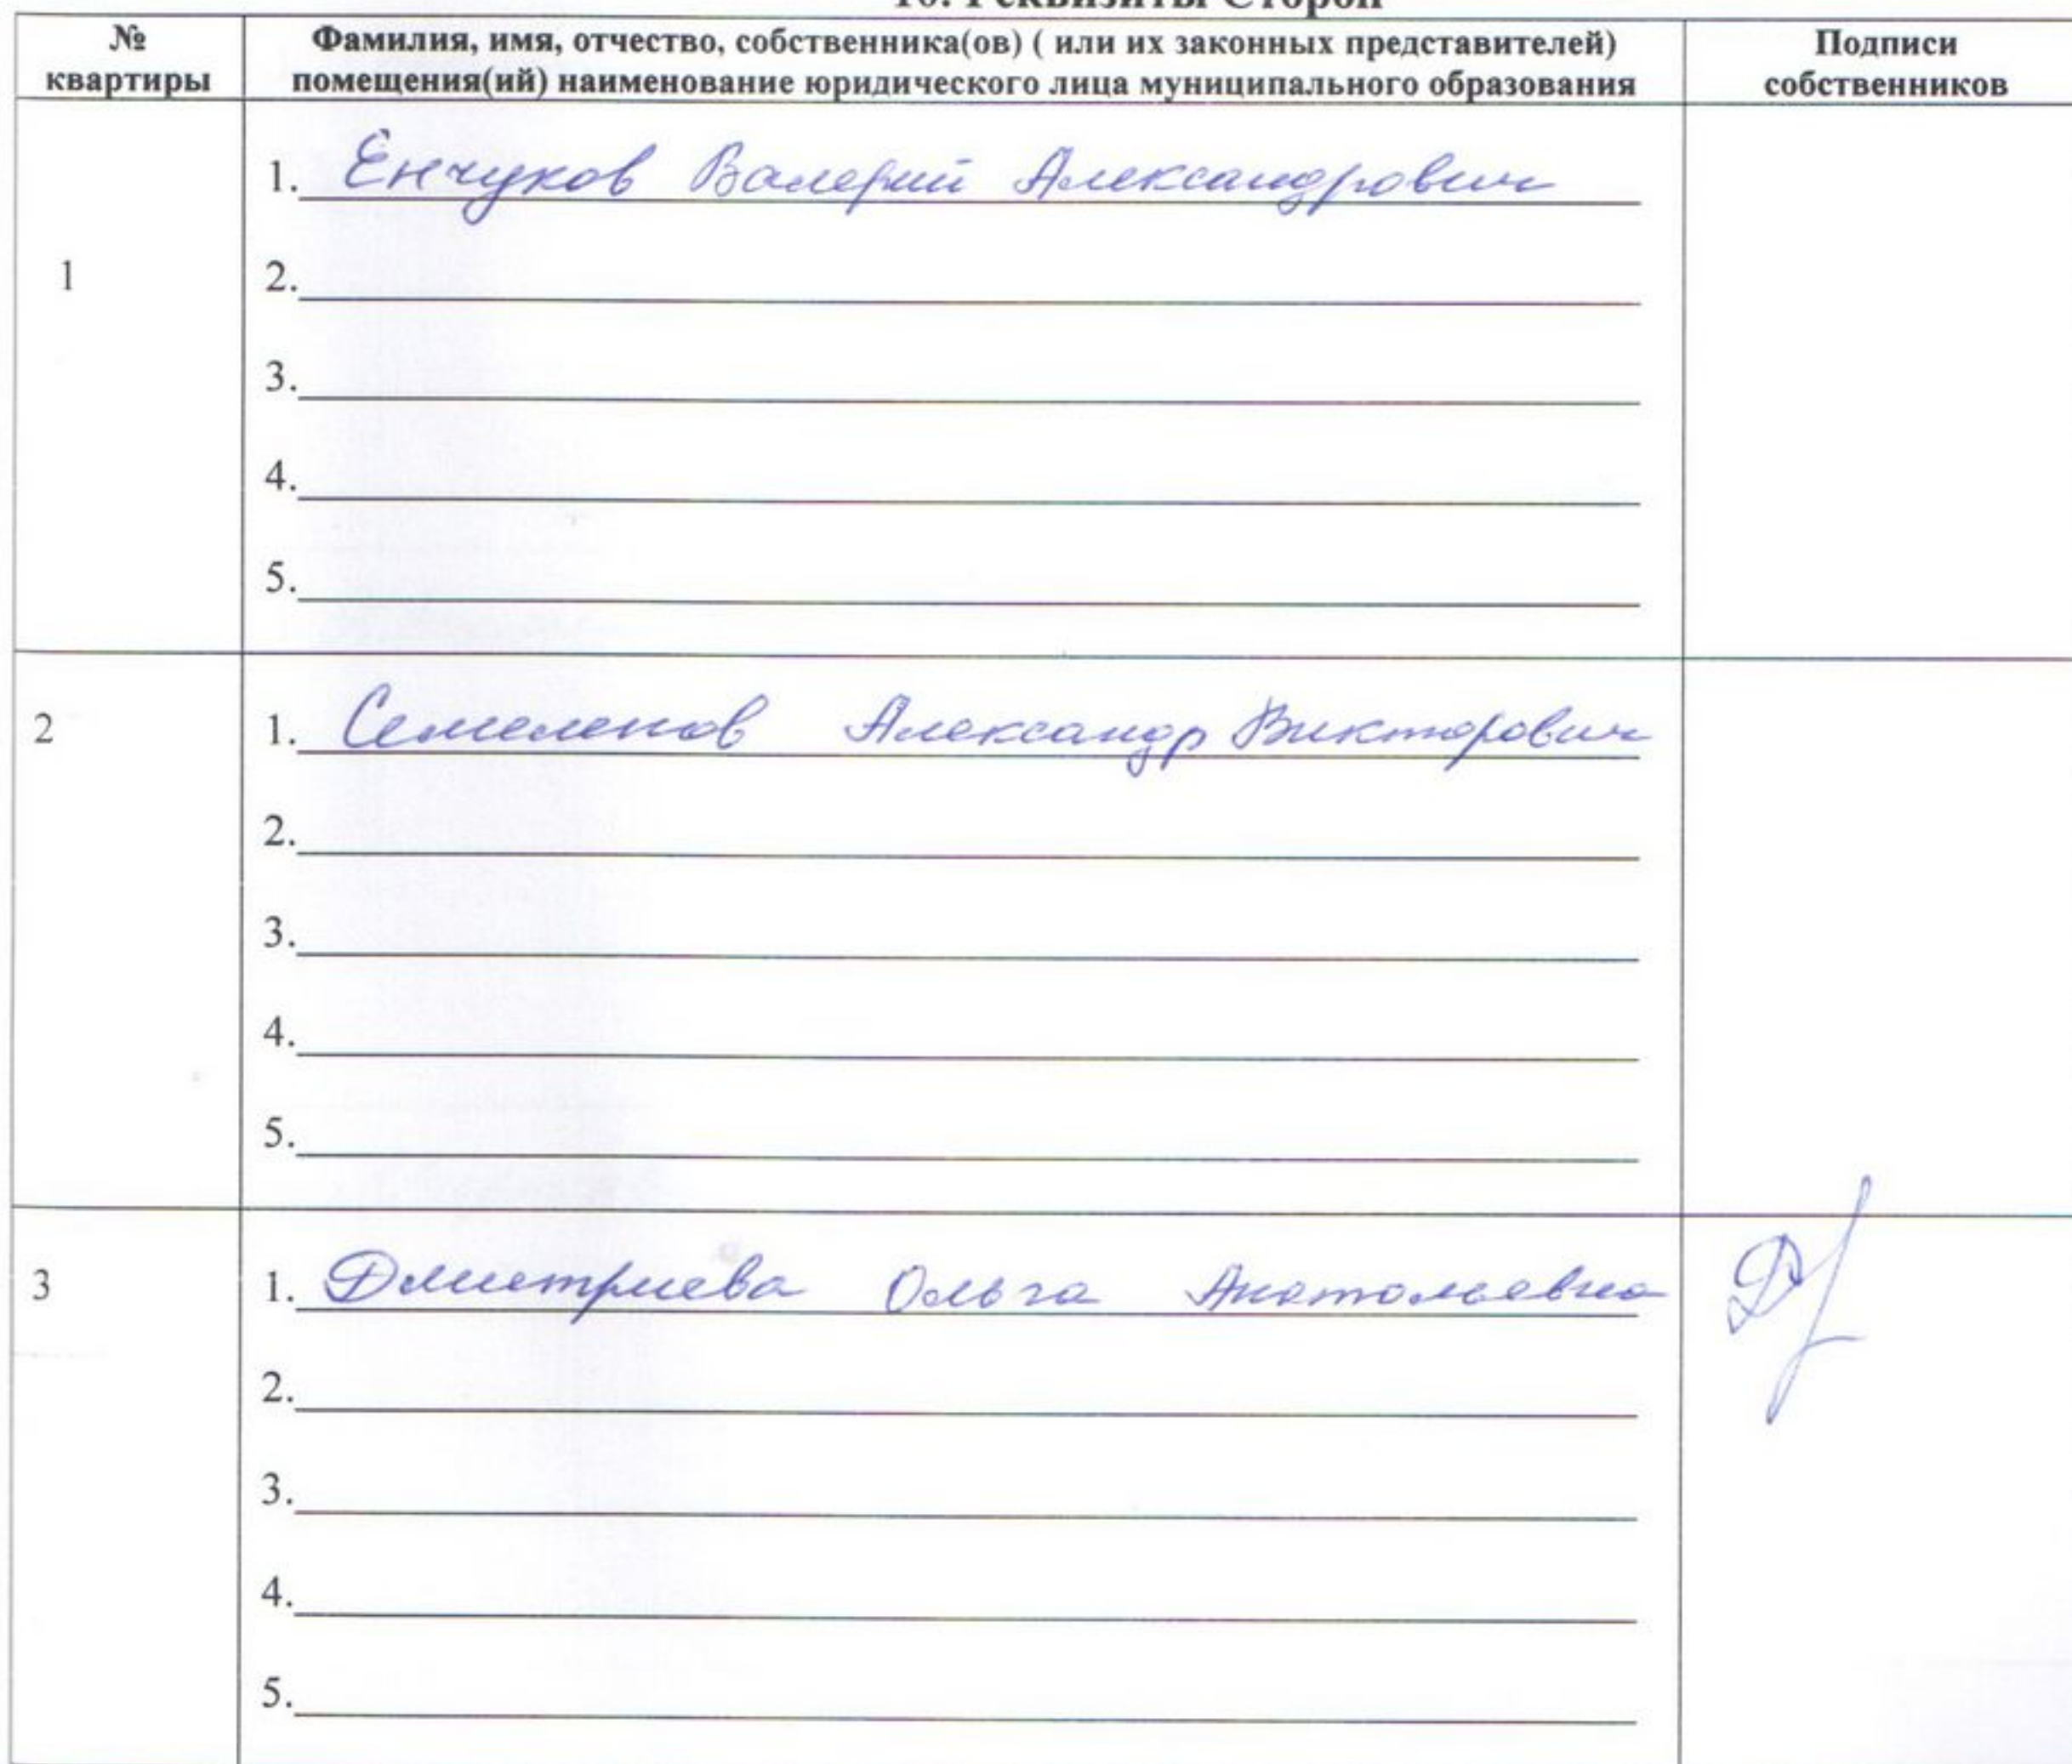 10. Реквизиты Сторон
№ квартиры
Фамилия, имя, отчество, собственника(ов) ( или их законных представителей)
помещения(ий) наименование юридического лица муниципального образования
Подписи
собственников
1
1. Енчуков Валерий Александрович
2.
3.
4.
5.
2
1. Александр Викторович
2.
3.
4.
5.
3
1. Дмитриева Ольга Анатольевна
2.
3.
4.
5.